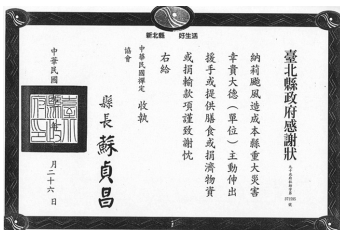 新北縣 好生活
臺北縣政府感謝狀
納莉颱風造成本縣重大災害
幸貴大德（單位）主動伸出
援手或提供膳食或捐濟物資
或捐輸款項謹致謝忱
右給
中華民國禪定
協會 收執
縣長 蘇貞昌
中華民國
月二十六日